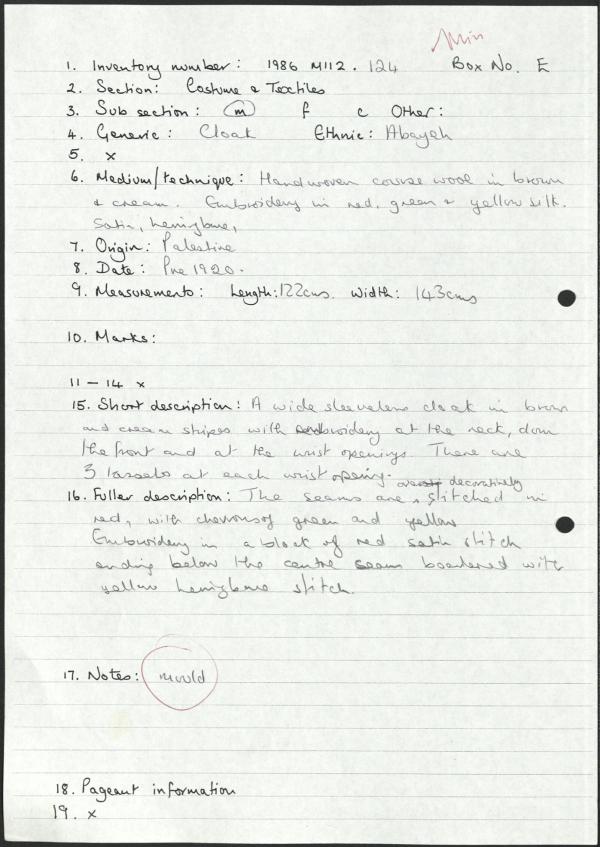 Min
1. Inventory number: 1986 M112. 124 Box No. E
2. Section: Costume & Textiles
3. Sub section: m f c Other:
4. Generic: Cloak Ethnic: Abayeh
5. x
6. Medium/technique: Handwoven course wool in brown
& cream. Embroidery in red, green & yellow silk.
Satin, herringbone,
7. Origin: Palestine
8. Date: Pre 1920.
9. Measurements: Length: 122cms. Width: 143cms
10. Marks:
11 - 14 x
15. Short description: A wide sleeveless cloak in brown
and cream stripes with embroidery at the neck, down
the front and at the wrist openings. There are
3 tassels at each wrist opening.
decoratively
16. Fuller description: The seams are stitched in
red, with chevrons of green and yellow
Embroidery in a block of red satin stitch
ending below the centre seam boardered with
yellow herringbone stitch.
17. Notes: mould
18. Pageant information
19. x